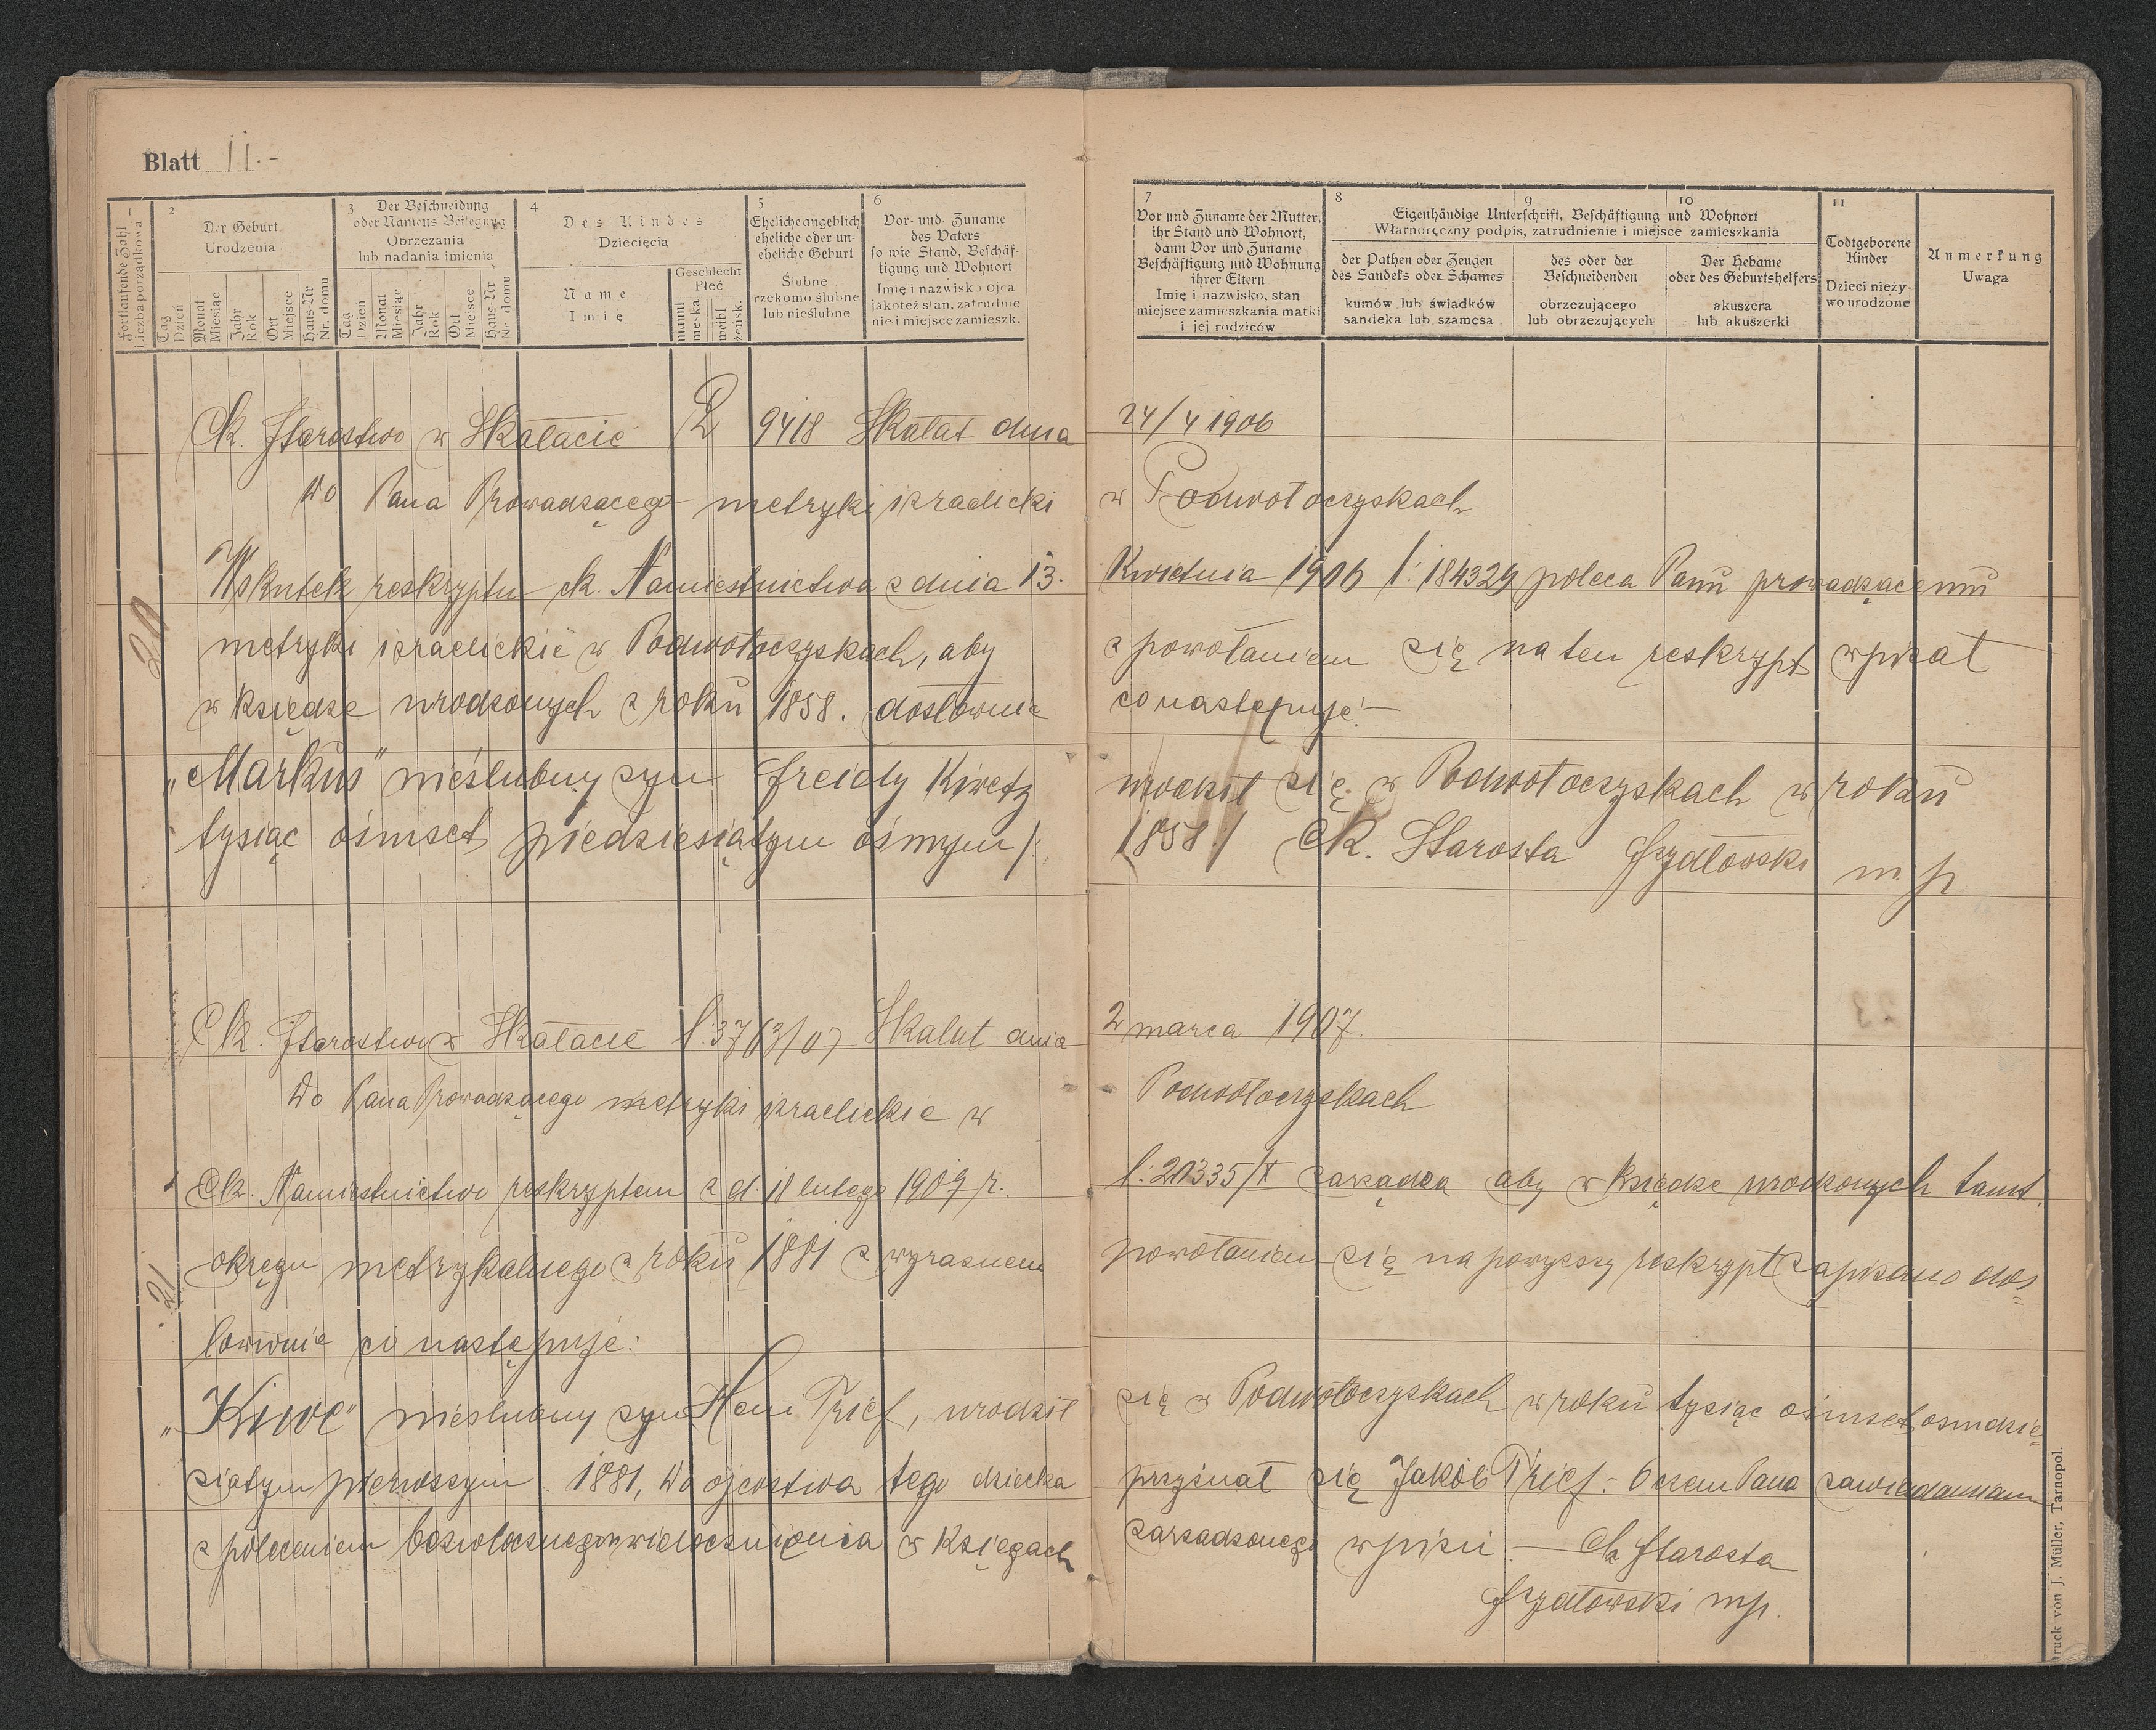 Blatt 11.-
1
Fortlaufende Zahl
Liczba porządkowa
2
Der Geburt
Urodzenia
Tag
Dzień
Monat
Miesiąc
Jahr
Rok
Ort
Miejsce
Haus-Nr
Nr. domu
3
Der Beschneidung
oder Namens Beilegung
Obrzezania
lub nadania imienia
Tag
Dzień
Monat
Miesiąc
Jahr
Rok
Ort
Miejsce
Haus-Nr
Nr. domu
4
Des Kindes
Dziecięcia
Name
Imię
Geschlecht
Płeć
männl
męska
weibl
żeńsk.
5
Eheliche angeblich
eheliche oder un-
eheliche Geburt
Ślubne
rzekomo ślubne
lub nieślubne
6
Vor- und Zuname
des Vaters
so wie Stand, Beschäf-
tigung und Wohnort
Imię i nazwisko ojca
jakoteż stan, zatrudnie
nie i miejsce zamieszk.
7
Vor und Zuname der Mutter,
ihr Stand und Wohnort,
dann Vor und Zuname
Beschäftigung und Wohnung
ihrer Eltern
Imię i nazwisko, stan
miejsce zamieszkania matki
i jej rodziców
8
9
10
Eigenhändige Unterschrift, Beschäftigung und Wohnort
Własnoręczny podpis, zatrudnienie i miejsce zamieszkania
der Pathen oder Zeugen
des Sandeks oder Schames
kumów lub świadków
sandeka lub szamesa
des oder der
Beschneidenden
obrzezującego
lub obrzezujących
Der Hebame
oder des Geburtshelfers
akuszera
lub akuszerki
11
Todtgeborene
Kinder
Dzieci nieży-
wo urodzone
Anmerkung
Uwaga
Ck. Starostwo w Skałacie L 9418 Skałat dnia 24/4 1906
Do Pana Prowadzącego metryki izraelicki w Podwołoczyskach
20
Wskutek reskryptu ck. Namiestnictwa z dnia 13. Kwietnia 1906 l: 184329 poleca Panu prowadzącemu
metryki izraelickie w Podwołoczyskach, aby z powołaniem się na ten reskrypt wpisał
w księdze urodzonych z roku 1858. dosłownie co następuje:-
„Markus" nieślubny syn Freidy Kiwetz urodził się w Podwołoczyskach w roku
tysiąc ośmset piedziesiątym ósmym /: 1858 :/ Ck. Starosta Szydłowski mp
Ck. Starostwo w Skałacie l: 3763/07 Skałat dnia 2 marca 1907.
Do Pana Prowadzącego metryki izraelickie w Podwołoczyskach
21
Ck. Namiestnictwo reskryptem z d. 18 lutego 1907 r. l: 20335/X zarządza aby w księdze urodzonych tamt.
okręgu metrykalnego z roku 1881 z wyraźnem powołaniem się na powyższy reskrypt zapisano dos=
łownie co następuje:
„Kiwe" nieślubny syn Heni Trief, urodził się w Podwołoczyskach w roku tysiąc ośmset osmdzie=
siątym pierwszym 1881, Do ojcostwa tego dziecka przyznał się Jakób Trief.- O czem Pana zawiadamiam
z poleceniem bezwłocznego uwidocznienia w księgach zarządzonego wpisu.- Ck Starosta
Szydłowski mp.
Druck von J. Müller, Tarnopol.